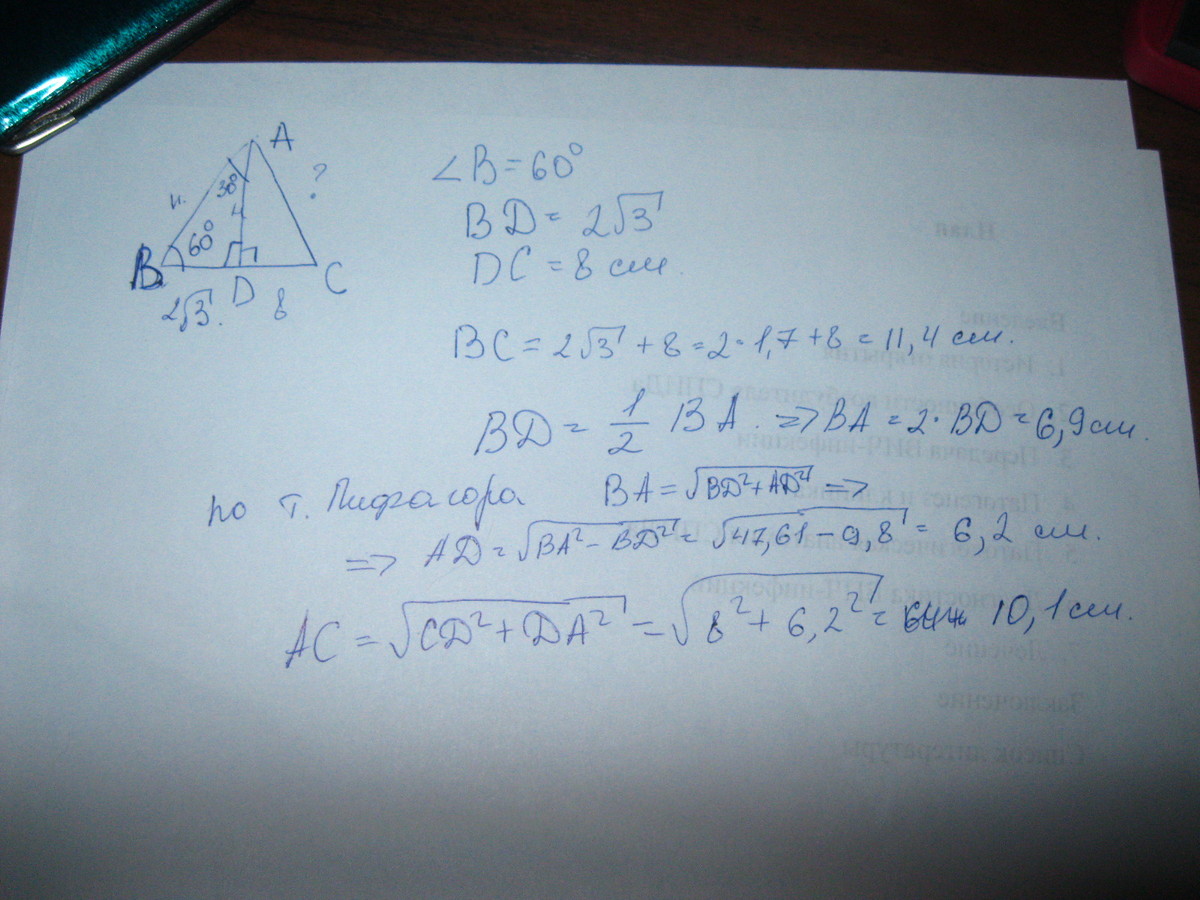 A
и.
30°
4
?
60°
B
D
C
2√3.
8
∠B=60°
BD= 2√3
DC=8 см.
BC=2√3+8=2·1,7+8=11,4 см.
BD= 1/2 BA. => BA=2·BD=6,9см.
по т. Пифагора BA=√BD²+AD² =>
=> AD=√BA²-BD²=√47,61-9,8= 6,2 см.
AC=√CD²+DA²=√8²+6,2²= 10,1см.
План
Введение
1. История открытия
3. Передача ВИЧ-инфекции
Заключение
Список литературы